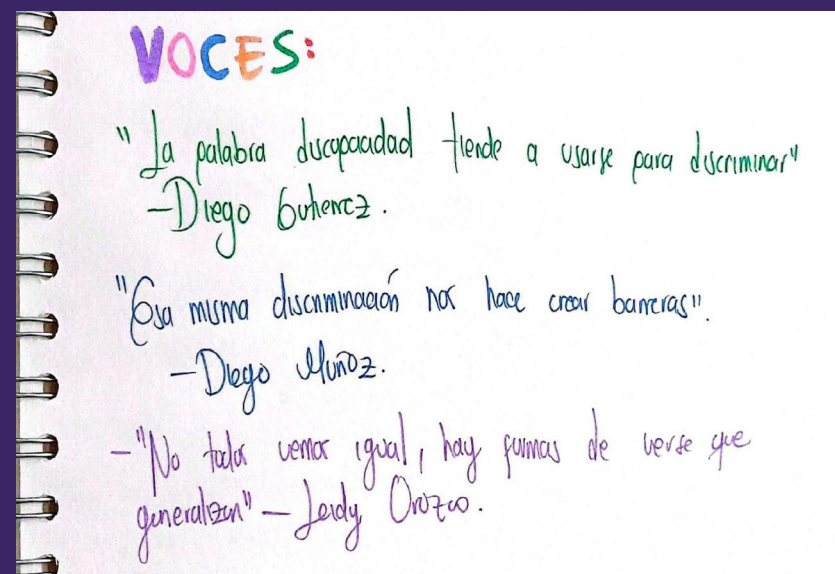 VOCES:
"La palabra discapacidad tiende a usarse para discriminar"
-Diego Gutierrez.
"Esa misma discriminación nos hace crear barreras".
-Diego Muñoz.
-"No todos vemos igual, hay formas de verse que
generalizan" - Leidy Orozco.